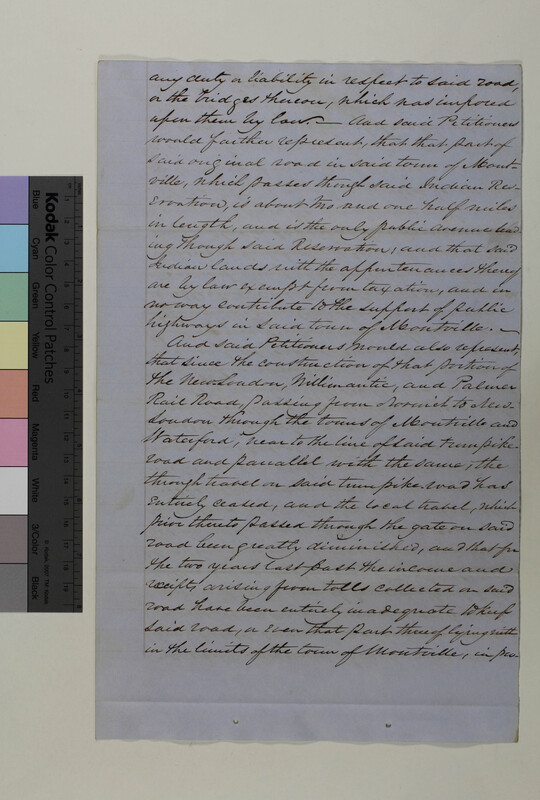 any duty or liability in respect to said road,
or the bridges thereon, which was imposed
upon them by law. — And said Petitioners
would further represent, that that part of
said original road in said town of Mont-
ville, which passes though said Indian Res-
ervation, is about two and one half miles
in length, and is the only public avenue lead-
ing though said Reservation, and that said
Indian lands with the appurtenances thereof
are by law exempt from taxation, and in
no way contribute to the support of public
highways in said town of Montville. —
And said Petitioners would also represent,
that since the construction of that portion of
the New London, Willimantic, and Palmer
Rail Road, passing from Norwich to New-
London through the towns of Montville and
Waterford, near to the line of said turnpike
road and parallel with the same, the
through travel on said turnpike road has
entirely ceased, and the local travel, which
prior thereto passed through the gate on said
road been greatly diminished, and that for
the two years last past the income and
receipts arising from tolls collected on said
road have been entirely inadequate to keep
said road, or even that part thereof lying with-
in the limits of the town of Montville, in pro-
Kodak Color Control Patches
Blue
Cyan
Green
Yellow
Red
Magenta
White
3/Color
Black